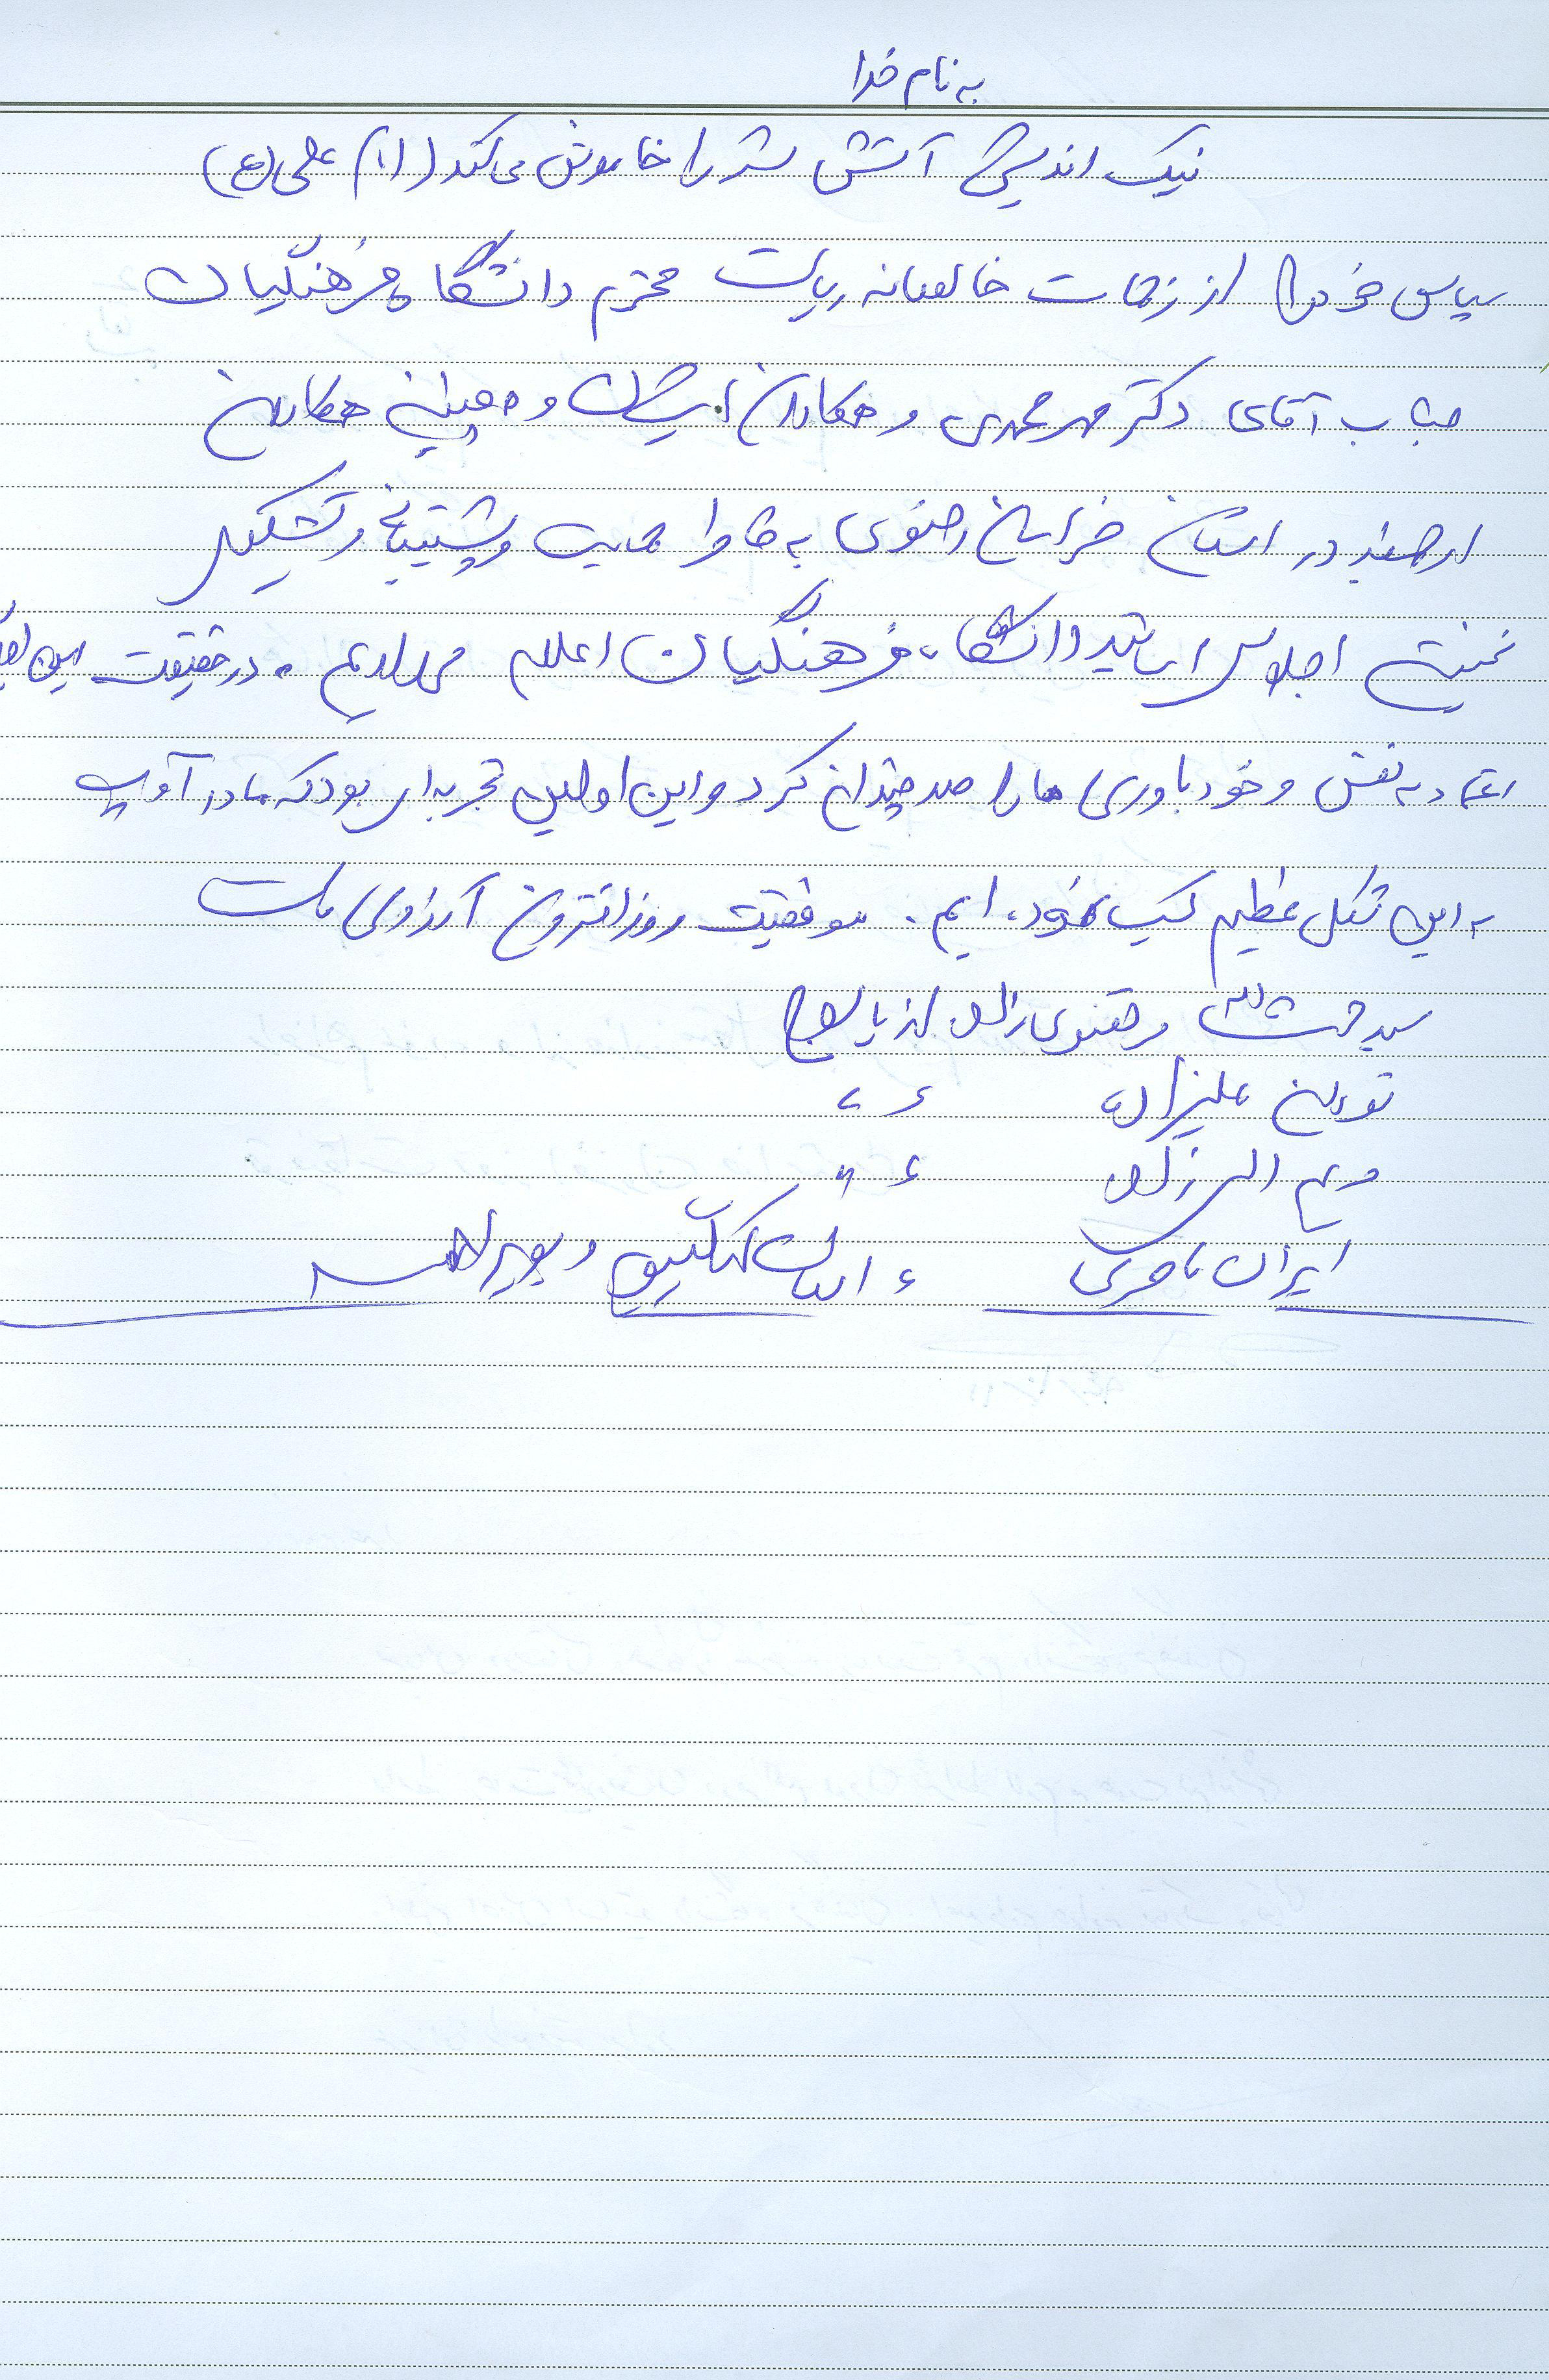 به نام خدا
نیک اندیشی آتش شر را خاموش می کند (امام علی (ع)
سپاس خود را از زحمات خالصانه ریاست محترم دانشگاه فرهنگیان
جناب آقای دکتر مهرمحمدی و همکاران ایشان و همچنین همکاران
ارجمند در استان خراسان رضوی به خاطر حمایت و پشتیبانی و تشکیل
نخستین اجلاس اساتید دانشگاه فرهنگیان اعلام می داریم . در حقیقت این
اعتماد به نفس و خود باوری ما را صد چندان کرد و این اولین تجربه ای بود که ما در
به این شکل عظیم کسب نموده ایم . موفقیت روزافزون آرزوی ماست
سید حشمت الله مرتضوی زاده از یاسوج
توران علیزاده 〃 〃
مریم 〃 〃
ایران 〃 استان کهگیلویه و بویراحمد